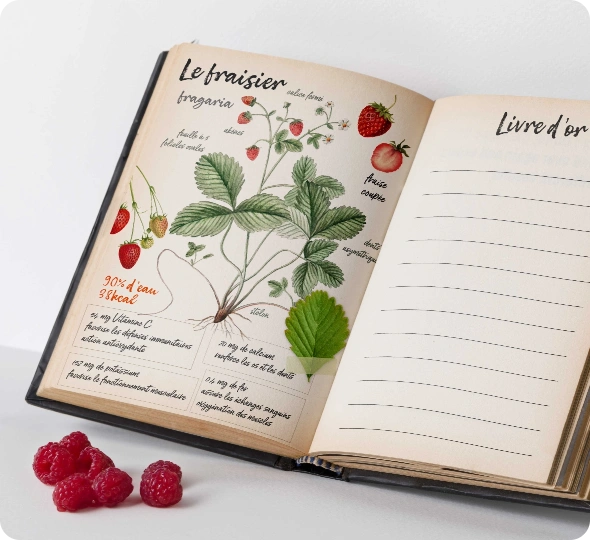 Le fraisier
fragaria
calice fermé
akènes
feuille à 3
folioles ovales
fraise
coupée
dents
asymétriques
90% d'eau
38kcal
stolon
54 mg Vitamine C
favorise les défenses immunitaires
action antioxydante
20 mg de calcium
renforce les os et les dents
162 mg de potassium
favorise le fonctionnement musculaire
0.4 mg de fer
assure les échanges sanguins
oxygénation des muscles
Livre d'or